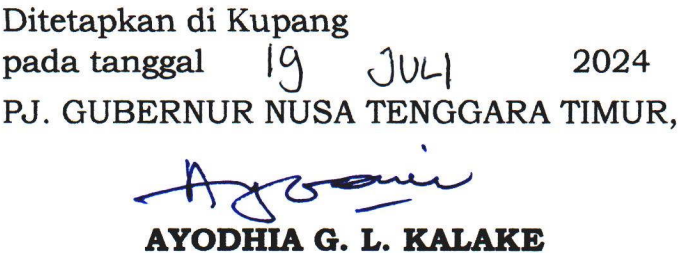 Ditetapkan di Kupang
pada tanggal 19 JULI 2024
PJ. GUBERNUR NUSA TENGGARA TIMUR,
AYODHIA G. L. KALAKE